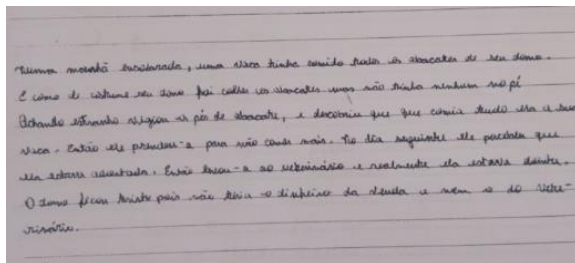 Numa manhã ensolarada, uma vaca tinha comido todos os abacates de seu dono.
E como de costume seu dono foi colher os abacates mas não tinha nenhum no pé
Achando estranho vigiou os pés de abacate, e descobriu que que comia tudo era a sua
vaca. Então ele prendeu-a para não comer mais. No dia seguinte ele percebeu que
ela estava adoentada. Então levou-a ao veterinário e realmente ela estava doente.
O dono ficou triste pois não teria o dinheiro da venda e nem o do vete-
rinário.